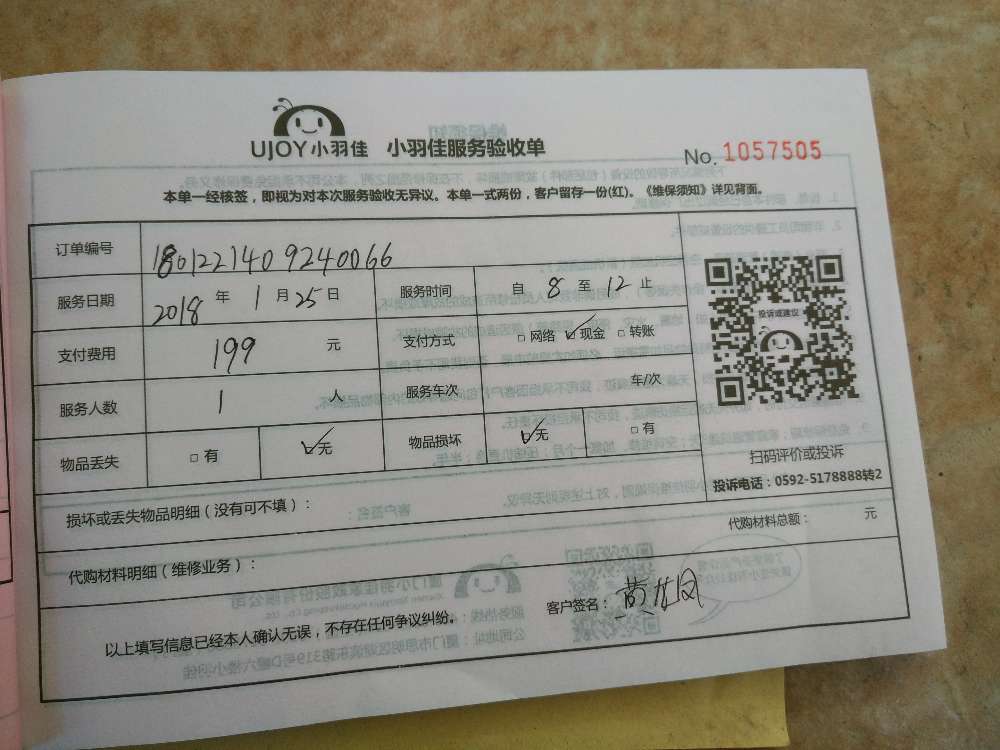 UJOY小羽佳 小羽佳服务验收单
No. 1057505
本单一经核签，即视为对本次服务验收无异议。本单一式两份，客户留存一份(红)。《维保须知》详见背面。
订单编号 180122140 9240066
服务日期 2018 年 1 月 25 日 服务时间 自 8 至 12 止
支付费用 199 元 支付方式 □ 网络 ☑ 现金 □ 转账
服务人数 1 人 服务车次 车/次
物品丢失 □ 有 ☑ 无 物品损坏 ☑ 无 □ 有
投诉或建议
扫码评价或投诉
投诉电话：0592-5178888转2
损坏或丢失物品明细（没有可不填）：
代购材料总额： 元
代购材料明细（维修业务）：
客户签名：
以上填写信息已经本人确认无误，不存在任何争议纠纷。